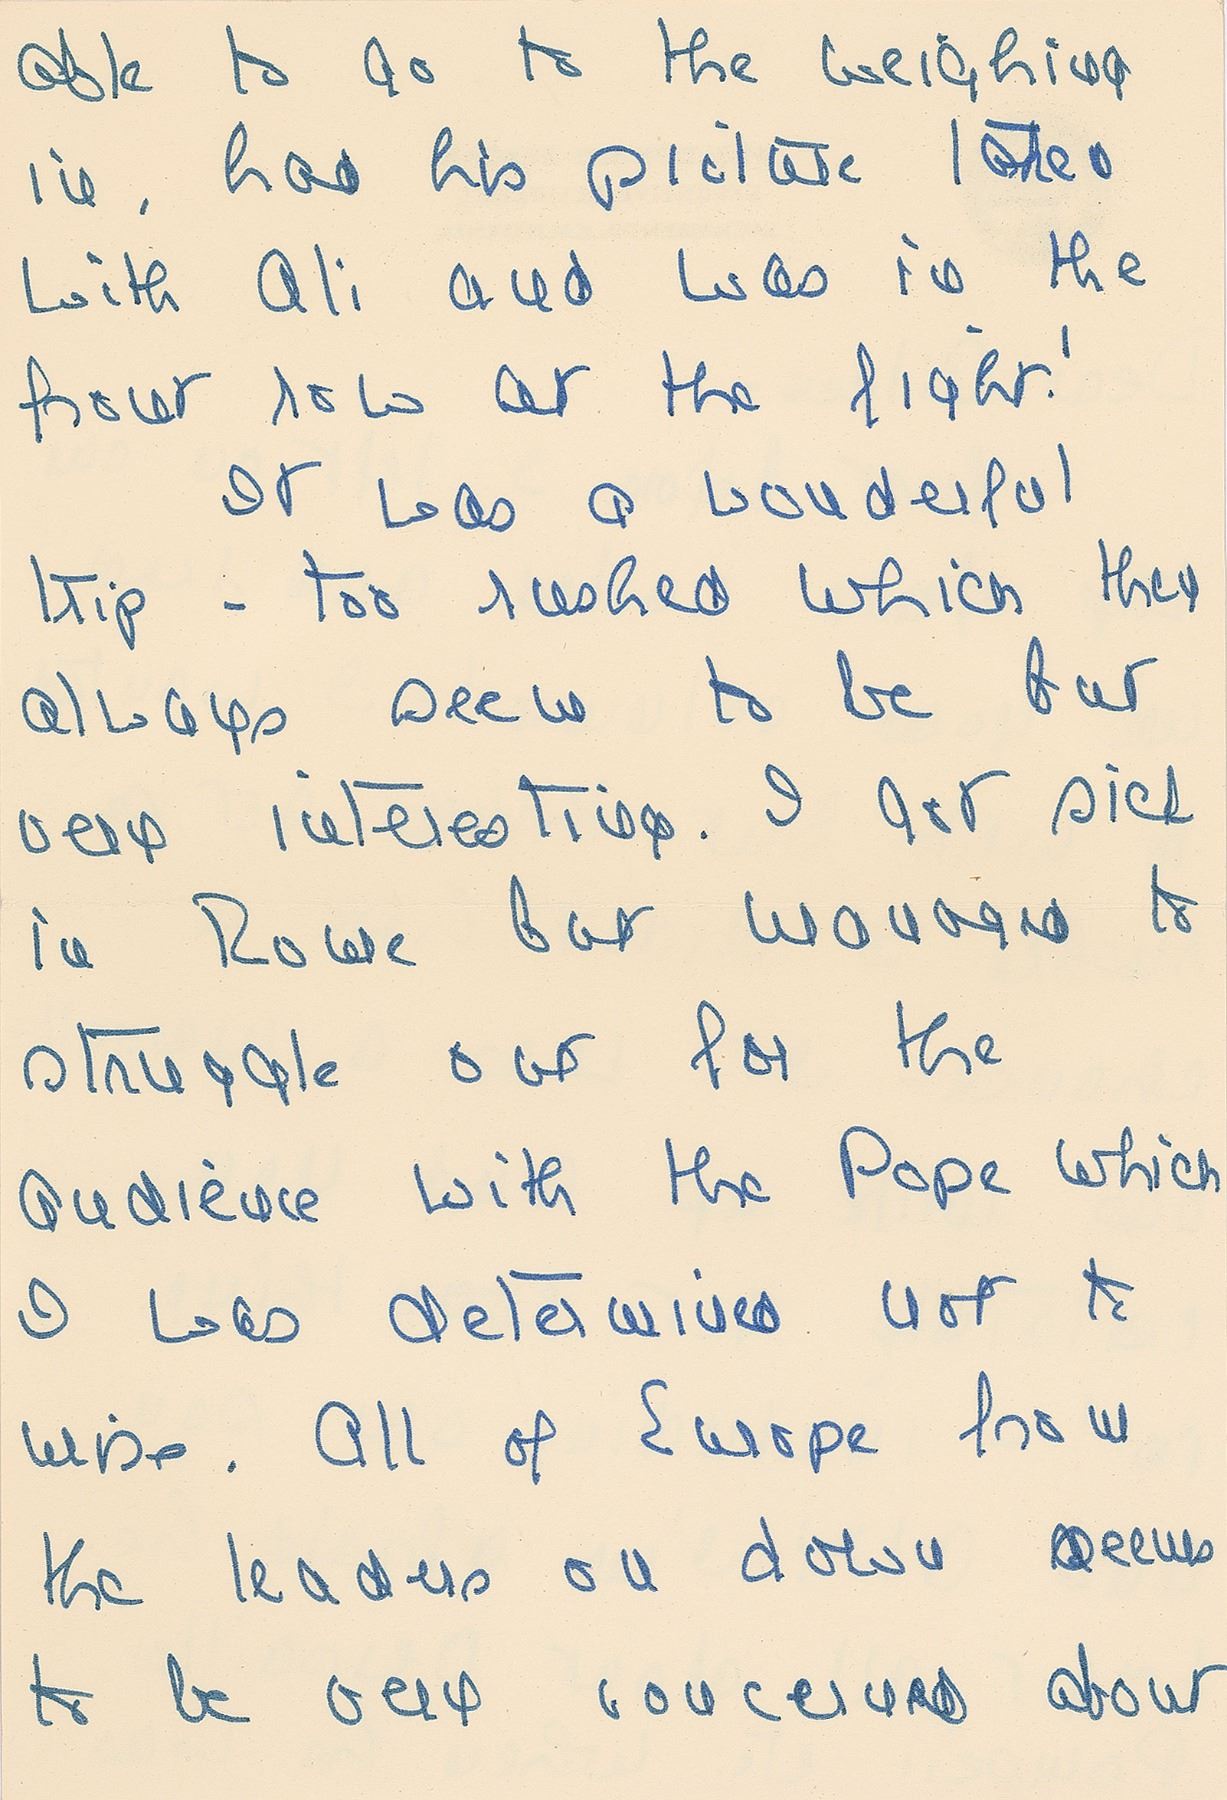 able to go to the weighing
in, had his picture taken
with Ali and was in the
front row at the fight!
It was a wonderful
trip - too rushed which they
always seem to be but
very interesting. I got sick
in Rome but managed to
struggle out for the
audience with the Pope which
I was determined not to
miss. All of Europe from
the leaders on down seems
to be very concerned about